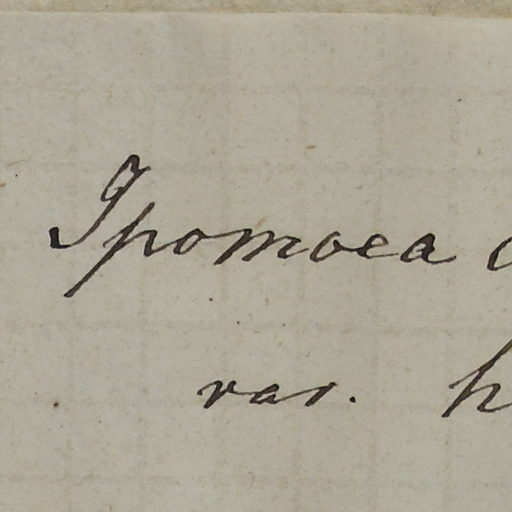 Ipomoea
var. h